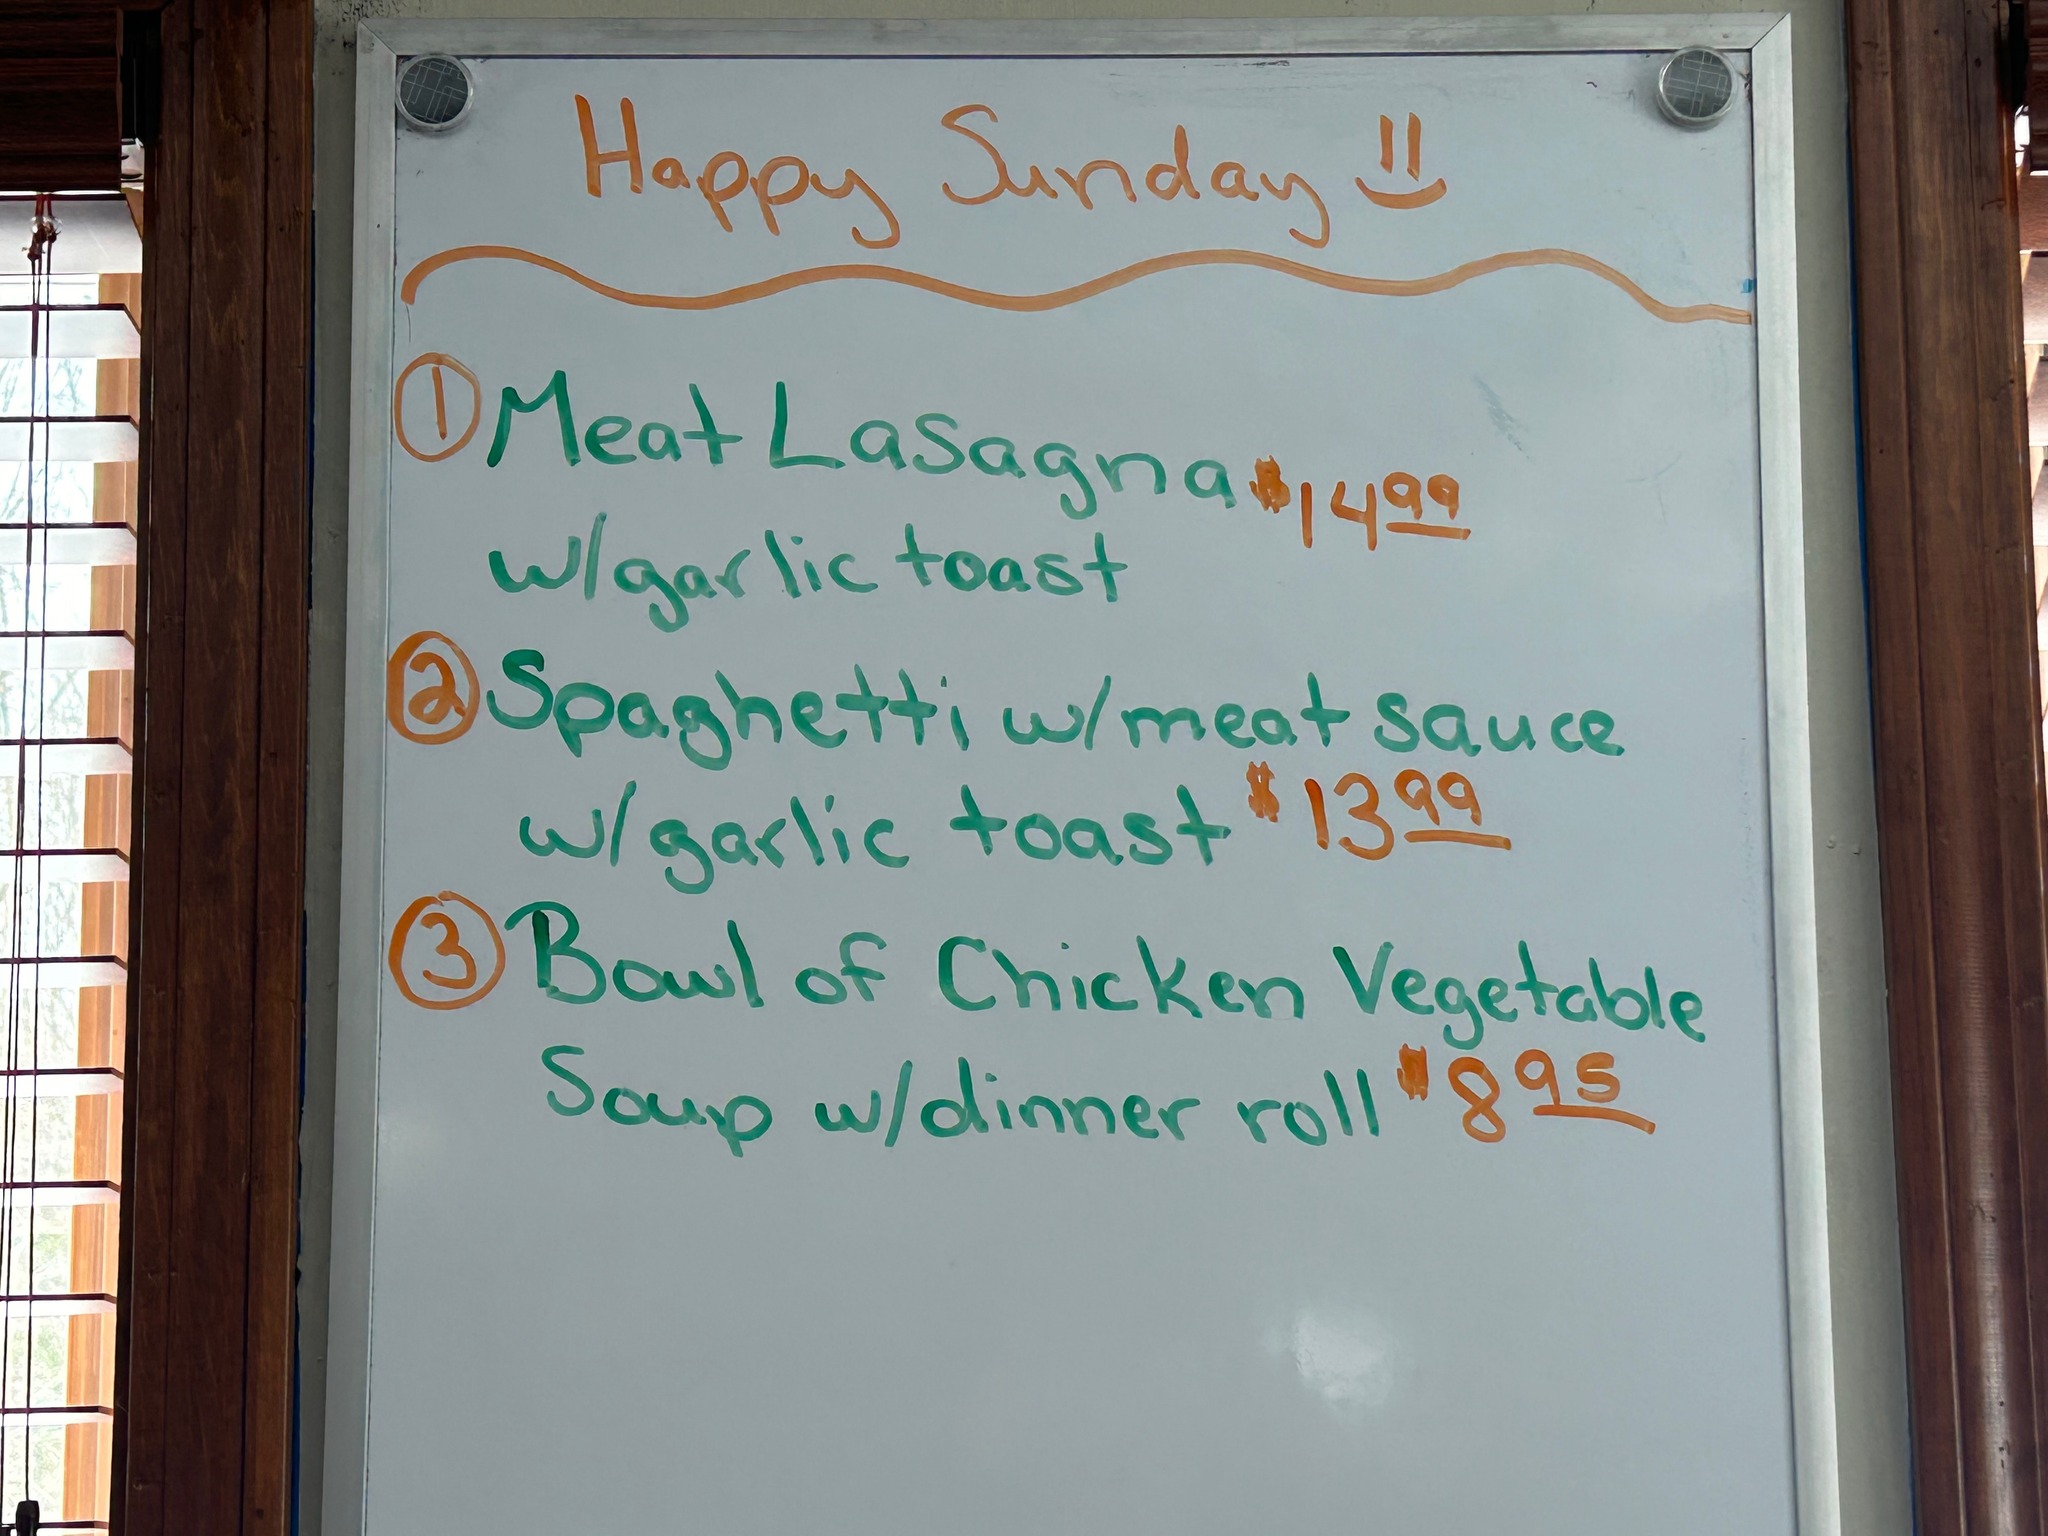 Happy Sunday
① Meat Lasagna $14.99
w/garlic toast
② Spaghetti w/meat sauce
w/garlic toast $13.99
③ Bowl of Chicken Vegetable
Soup w/dinner roll $8.95